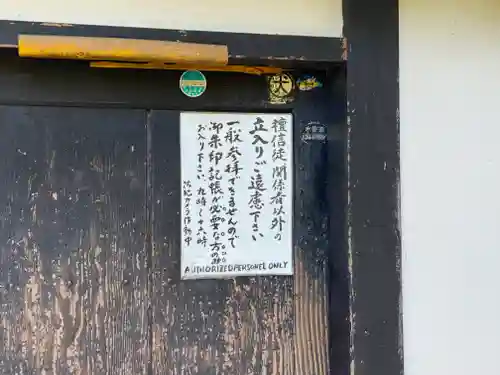 檀信徒関係者以外の
立入りご遠慮下さい
一般参拝できませんので
御朱印記帳が必要な方のみ
お入り下さい 九時〜十六時
防犯カメラ作動中
AUTHORIZED PERSONEL ONLY
犬